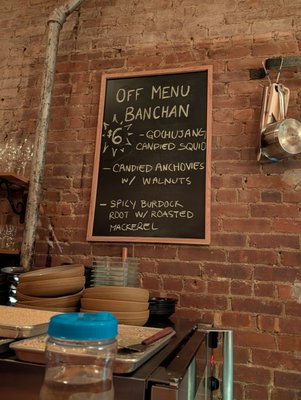 OFF MENU
BANCHAN
$6
- GOCHUJANG
CANDIED SQUID
- CANDIED ANCHOVIES
W/ WALNUTS
- SPICY BURDOCK
ROOT W/ ROASTED
MACKEREL